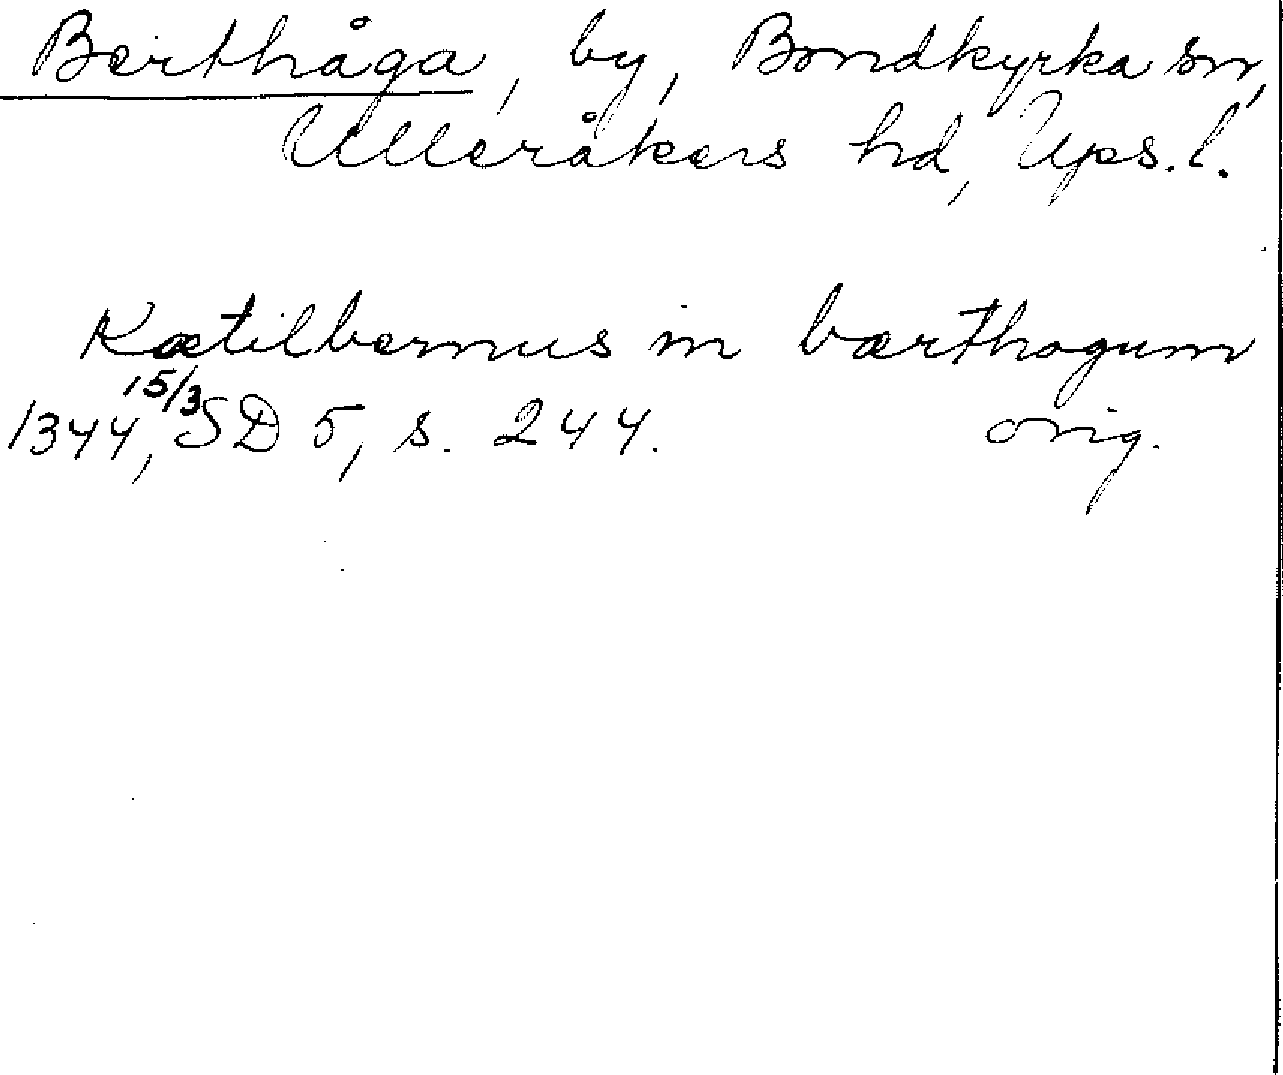 Berthåga, by, Bondkyrka sn,
Ulleråkers hd, Ups. l.
Kætilbernus in bærthogum
1344 15/3, SD 5, s. 244. orig.